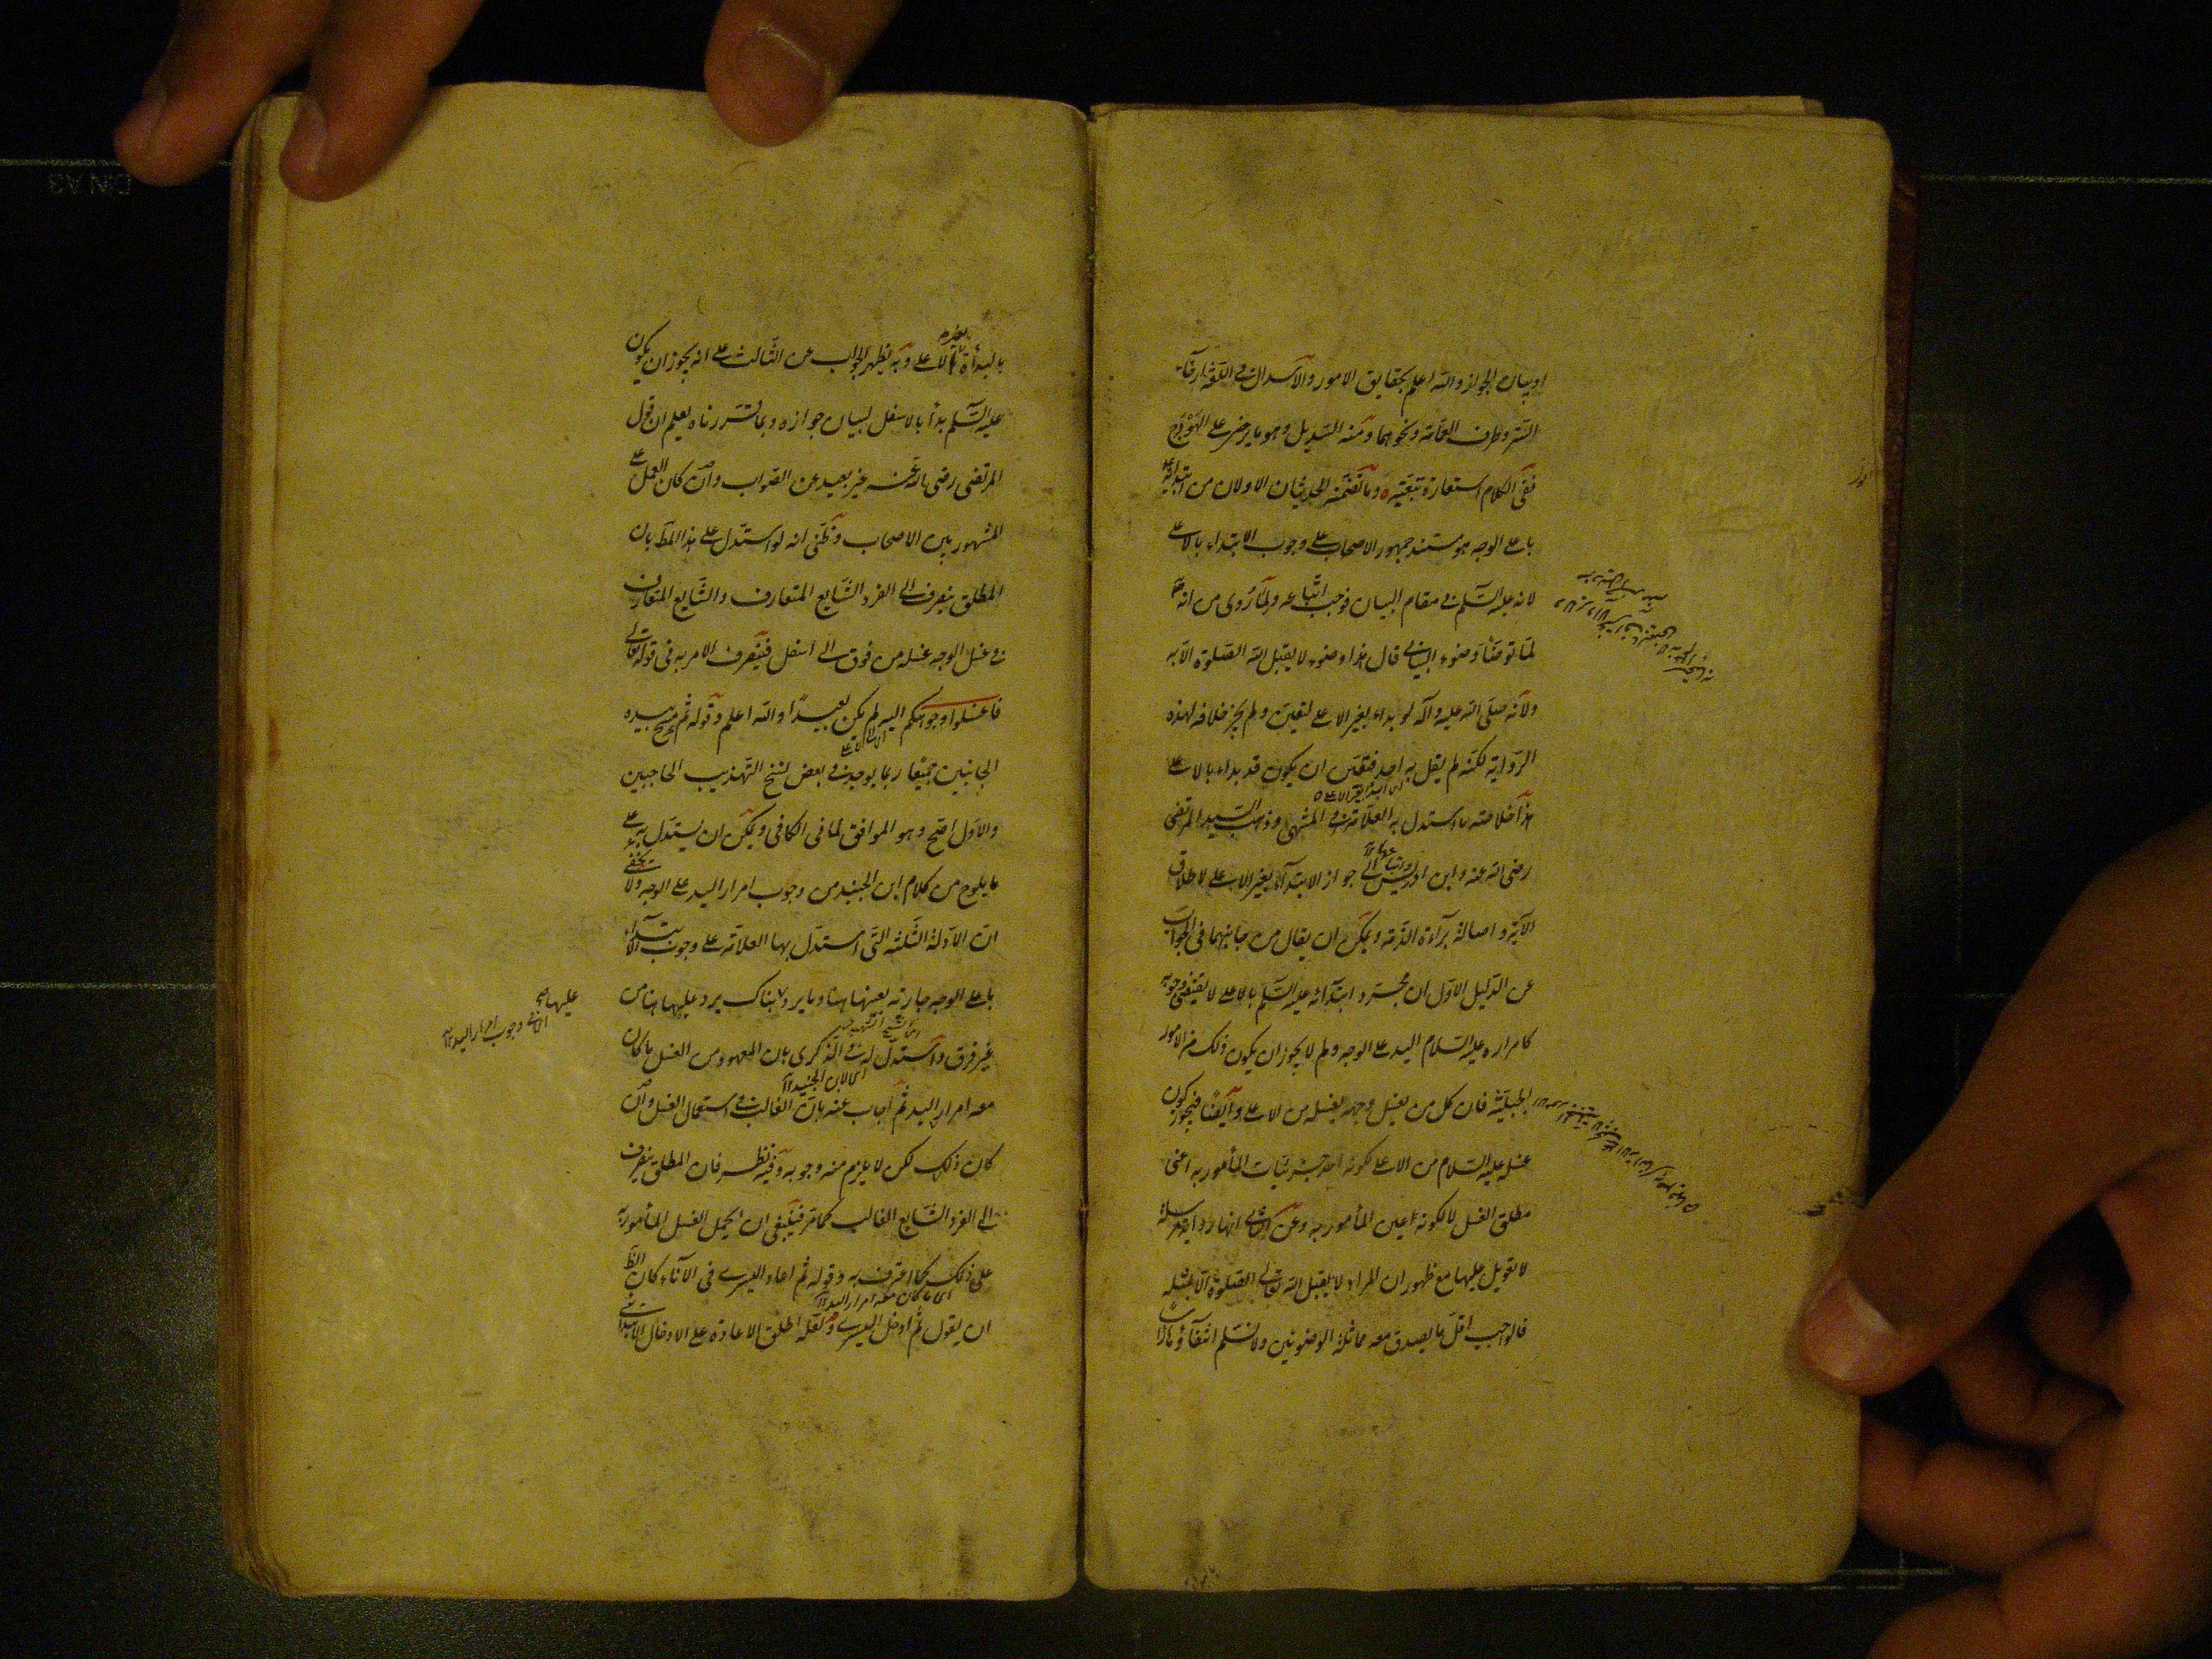 او بيان الجواز والله اعلم بحقايق الامور والاسدال في اللغة ارخاء
الستر وطرف العمامة ونحوهما ومنه السديل وهو ما يرخى على الهودج
ففي الكلام استعارة تبعية وما تضمنه الحديثان الاولان من ابتدائه ع
باعلى الوجه هو مستند جمهور الاصحاب على وجوب الابتداء بالاعلى
لانه عليه السلم في مقام البيان فوجب اتباعه ولما روى من انه ص
لما توضأ وضوء البياني قال هذا وضوء لا يقبل الله الصلوة الا به
ولانه صلى الله عليه وآله لو بداء بغير الاعلى لتعين ولم يجز خلافه لهذه
الرواية لكنه لم يقل به احد فتعين ان يكون قد بداء بالاعلى
هذا خلاصة ما استدل به العلامة في المنتهى وذهب السيد المرتضى
رضى الله عنه وابن ادريس الى جواز الابتداء بغير الاعلى لاطلاق
الآية واصالة براءة الذمة ويمكن ان يقال من جانبهما في الجواب
عن الدليل الاول ان مجرد ابتدائه عليه السلم بالاعلى لا يقتضي وجوبه
كامراره عليه السلام اليد على الوجه ولم لا يجوز ان يكون ذلك من الامور
الجبلية فان كل من يغسل وجهه يغسل من الاعلى وايضا فيجوز كون
غسله عليه السلام من الاعلى لكونه احد جزئيات المأمور به اعنى
مطلق الغسل لا لكونه عين المأمور به وعن الثاني انها رواية مرسلة
لا تعويل عليها مع ظهور ان المراد لا يقبل الله تعالى الصلوة الا بمثله
فالواجب اقل ما يصدق معه مماثلة الوضوئين ولا نسلم انتفاؤها اذا
بالبدأة بغيره الاعلى وبه يظهر الجواب عن الثالث على انه يجوز ان يكون
عليه السلم بدأ بالاسفل لبيان جوازه وبما قررناه يعلم ان قول
المرتضى رضى الله عنه غير بعيد عن الصواب وان كان العمل على
المشهور بين الاصحاب وظنى انه لو استدل على هذا المط بان
المطلق ينصرف الى الفرد الشايع المتعارف والشايع المتعارف
في غسل الوجه غسله من فوق الى اسفل فينصرف الامر به فى قوله تعالى
فاغسلوا وجوهكم اليه لم يكن بعيدا والله اعلم وقوله ثم مسح بيده
الجانبين جميعا ربما يوجد في بعض نسخ التهذيب الحاجبين
والاول اصح وهو الموافق لما فى الكافى ويمكن ان يستدل به على
ما يلوح من كلام ابن الجنيد من وجوب امرار اليد على الوجه ولا يخفى
ان الادلة الثلثة التى استدل بها العلامة على وجوب الابتداء
باعلى الوجه جارية بعينها هنا وما يرد هناك يرد عليها هنا من
عليها صح
اى في وجوب امرار اليد
غير فرق واستدل له في الذكرى بان المعهود من الغسل ما كان
اى لابن الجنيد
معه امرار اليد ثم اجاب عنه بان الغالب في استعمال الغسل وان
كان ذلك لكن لا يلزم منه وجوبه وفيه نظر فان المطلق ينصرف
الى الفرد الشايع الغالب كما مر فينبغى ان يحمل الغسل المأمور به
على ذلك كما اعترف به وقوله ثم اعاد اليسرى فى الاناء كان الظ
اى ما كان معه امرار اليد
ان يقول ثم ادخل اليسرى ولعله اطلق الاعادة على الادخال الابتدائي